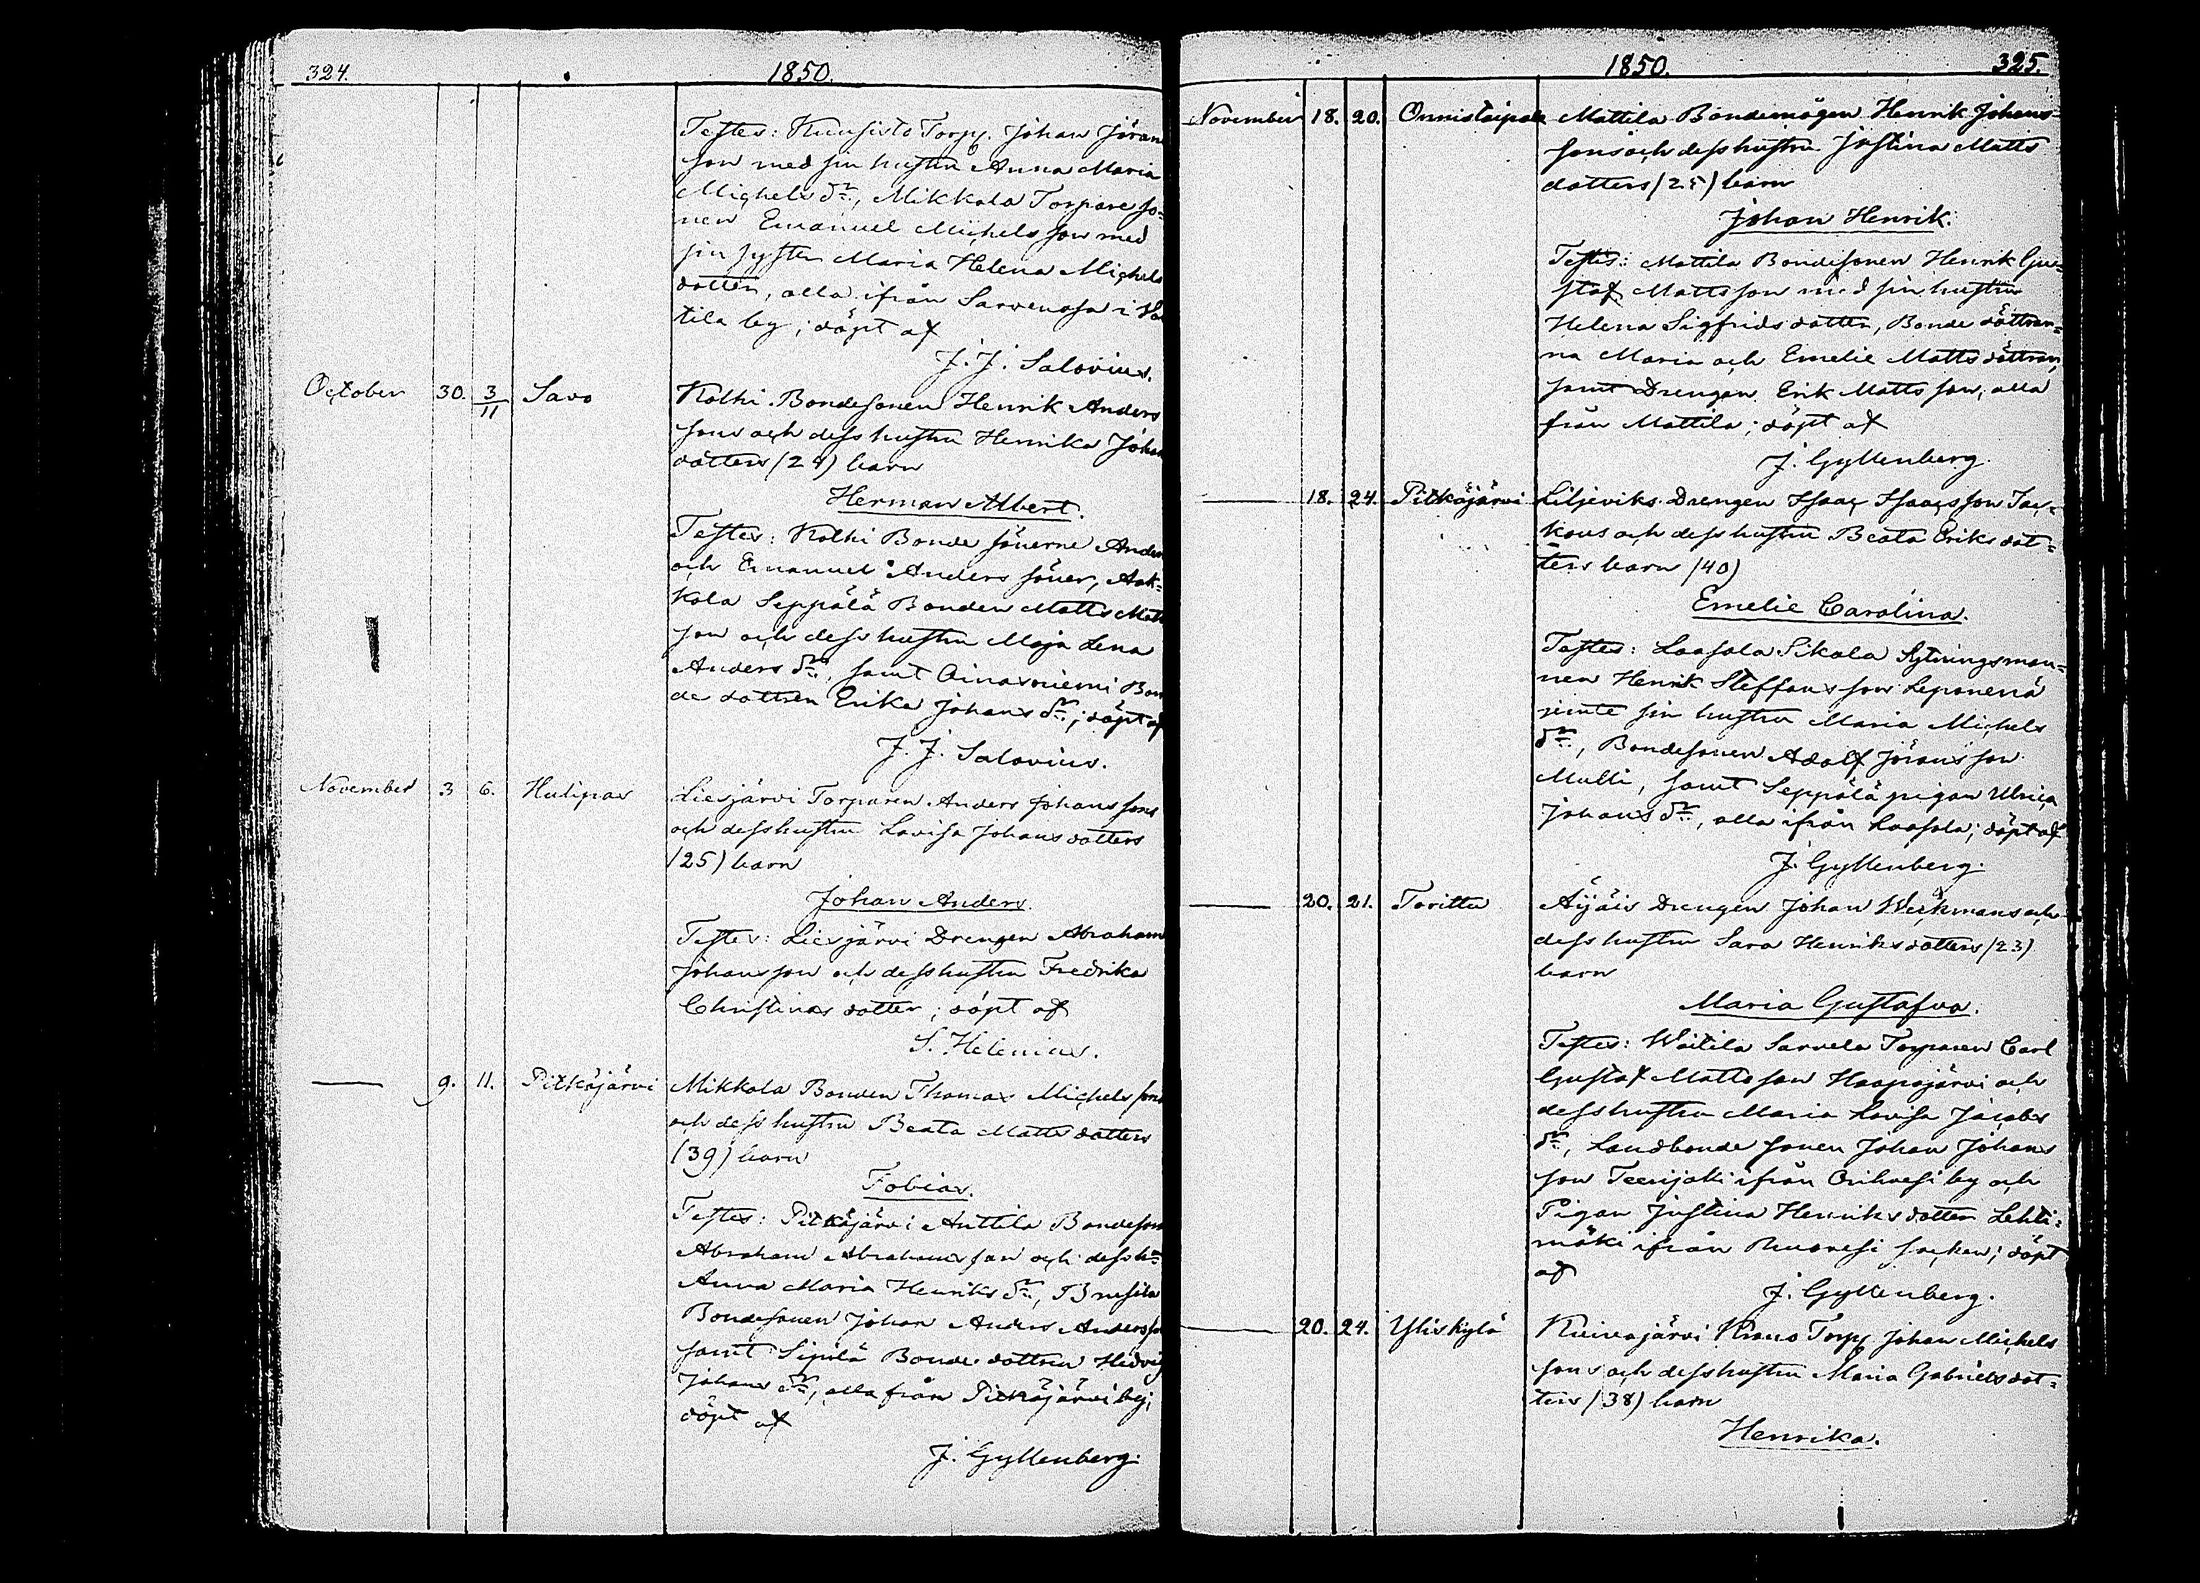 324.
1850.
Testes: Kuusisto Torp. Johan Jöran
son med sin hustru Anna Maria
Michels dr., Mikkola Torpare so-
nen Emanuel Michelsson med
sin syster Maria Helena Michels
dotter, alla ifrån Sarvenosa i
tila by; döpt af
J. J. Salovius.
October 30. 3/11 Savo Kolhi Bondesonen Henrik Anders
sons och dess hustru Henrika Johans
dotters (24) barn
Herman Albert.
Testes: Kolhi Bonde sönerne Anders
och Emanuel Anders söner, Aak-
kola Seppälä Bonden Matts Matts
son och dess hustru Maja Lena
Anders dr., samt Oinasniemi Bon
de dottren Erika Johans dr.; döpt af
J. J. Salovius.
November 3 6. Hulipas Liesjärvi Torparen Anders Johanssons
och dess hustru Lovisa Johans dotters
(25) barn
Johan Anders.
Testes: Liesjärvi Drengen Abraham
Johansson och dess hustru Fredrika
Christinas dotter; döpt af
S. Helenius.
— 9. 11. Pitkäjärvi Mikkola Bonden Thomas Michelssons
och dess hustru Beata Matts dotters
(39) barn
Tobias.
Testes: Pitkäjärvi Anttila Bondeson
Abraham Abrahamsson och dess h:
Anna Maria Henriks dr.,
Bondesonen Johan Anders Andersson
samt Sipilä Bonde dottren Hedvig
Johans dr., alla från Pitkäjärvi by;
döpt af
J. Gyllenberg.
1850.
325.
November 18. 20. Onnistaipale Mattila Bondemågen Henrik Johans-
sons och dess hustru Justina Matts
dotters (25) barn
Johan Henrik.
Testes: Mattila Bondesonen Henrik Gu-
staf Mattsson med sin hustru
Helena Sigfrids dotter, Bonde döttrar-
na Maria och Emelie Matts döttrar,
samt Drengen Erik Mattsson, alla
från Mattila; döpt af
J. Gyllenberg.
— 18. 24. Pitkäjärvi Liljeviks Drengen Isaac Isaacsson Tas-
kous och dess hustru Beata Eriks dot-
ters barn (40)
Emelie Carolina.
Testes: Laasola Sikala Sytningsman-
nen Henrik Steffansson Leponenä
jemte sin hustru Maria Michels
dr., Bondesonen Adolf Jöransson
Mulli, samt Seppälä pigan Ulrica
Johans dr., alla ifrån Laasola; döpt af
J. Gyllenberg.
— 20. 21. Torittu Äijäis Drengen Johan Weckmans och
dess hustru Sara Henriks dotters (23)
barn
Maria Gustafva.
Testes: Woitila Sarvela Torparen Carl
Gustaf Mattsson Haapajärvi och
dess hustru Maria Lovisa Jacobs
dr., Landbonde sonen Johan Johans
son Teerijoki ifrån Orihvesi by och
Pigan Justina Henriks dotter Lehti-
mäki ifrån Ruovesi socken; döpt
af
J. Gyllenberg.
— 20. 24. Yliskylä Kuivajärvi Torp. Johan Michels
sons och dess hustru Maria Gabriels dot-
ters (38) barn
Henrika.